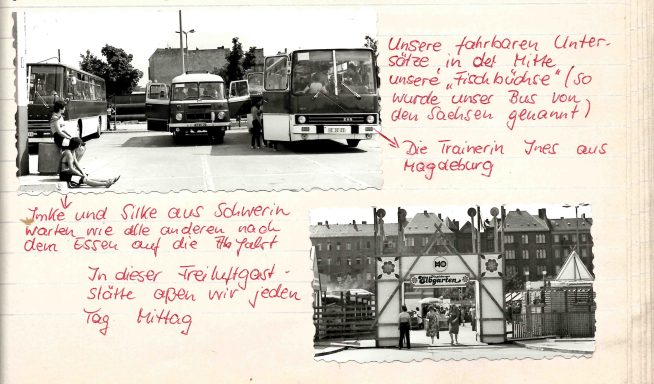 Unsere fahrbaren Unter-
sätze, in der Mitte
unsere „Fischbüchse" (so
wurde unser Bus von
den Sachsen genannt)
Die Trainerin Ines aus
Magdeburg
Imke und Silke aus Schwerin
warten wie alle anderen nach
dem Essen auf die Abfahrt
In dieser Freiluftgast-
stätte aßen wir jeden
Tag Mittag
HO
Elbgarten